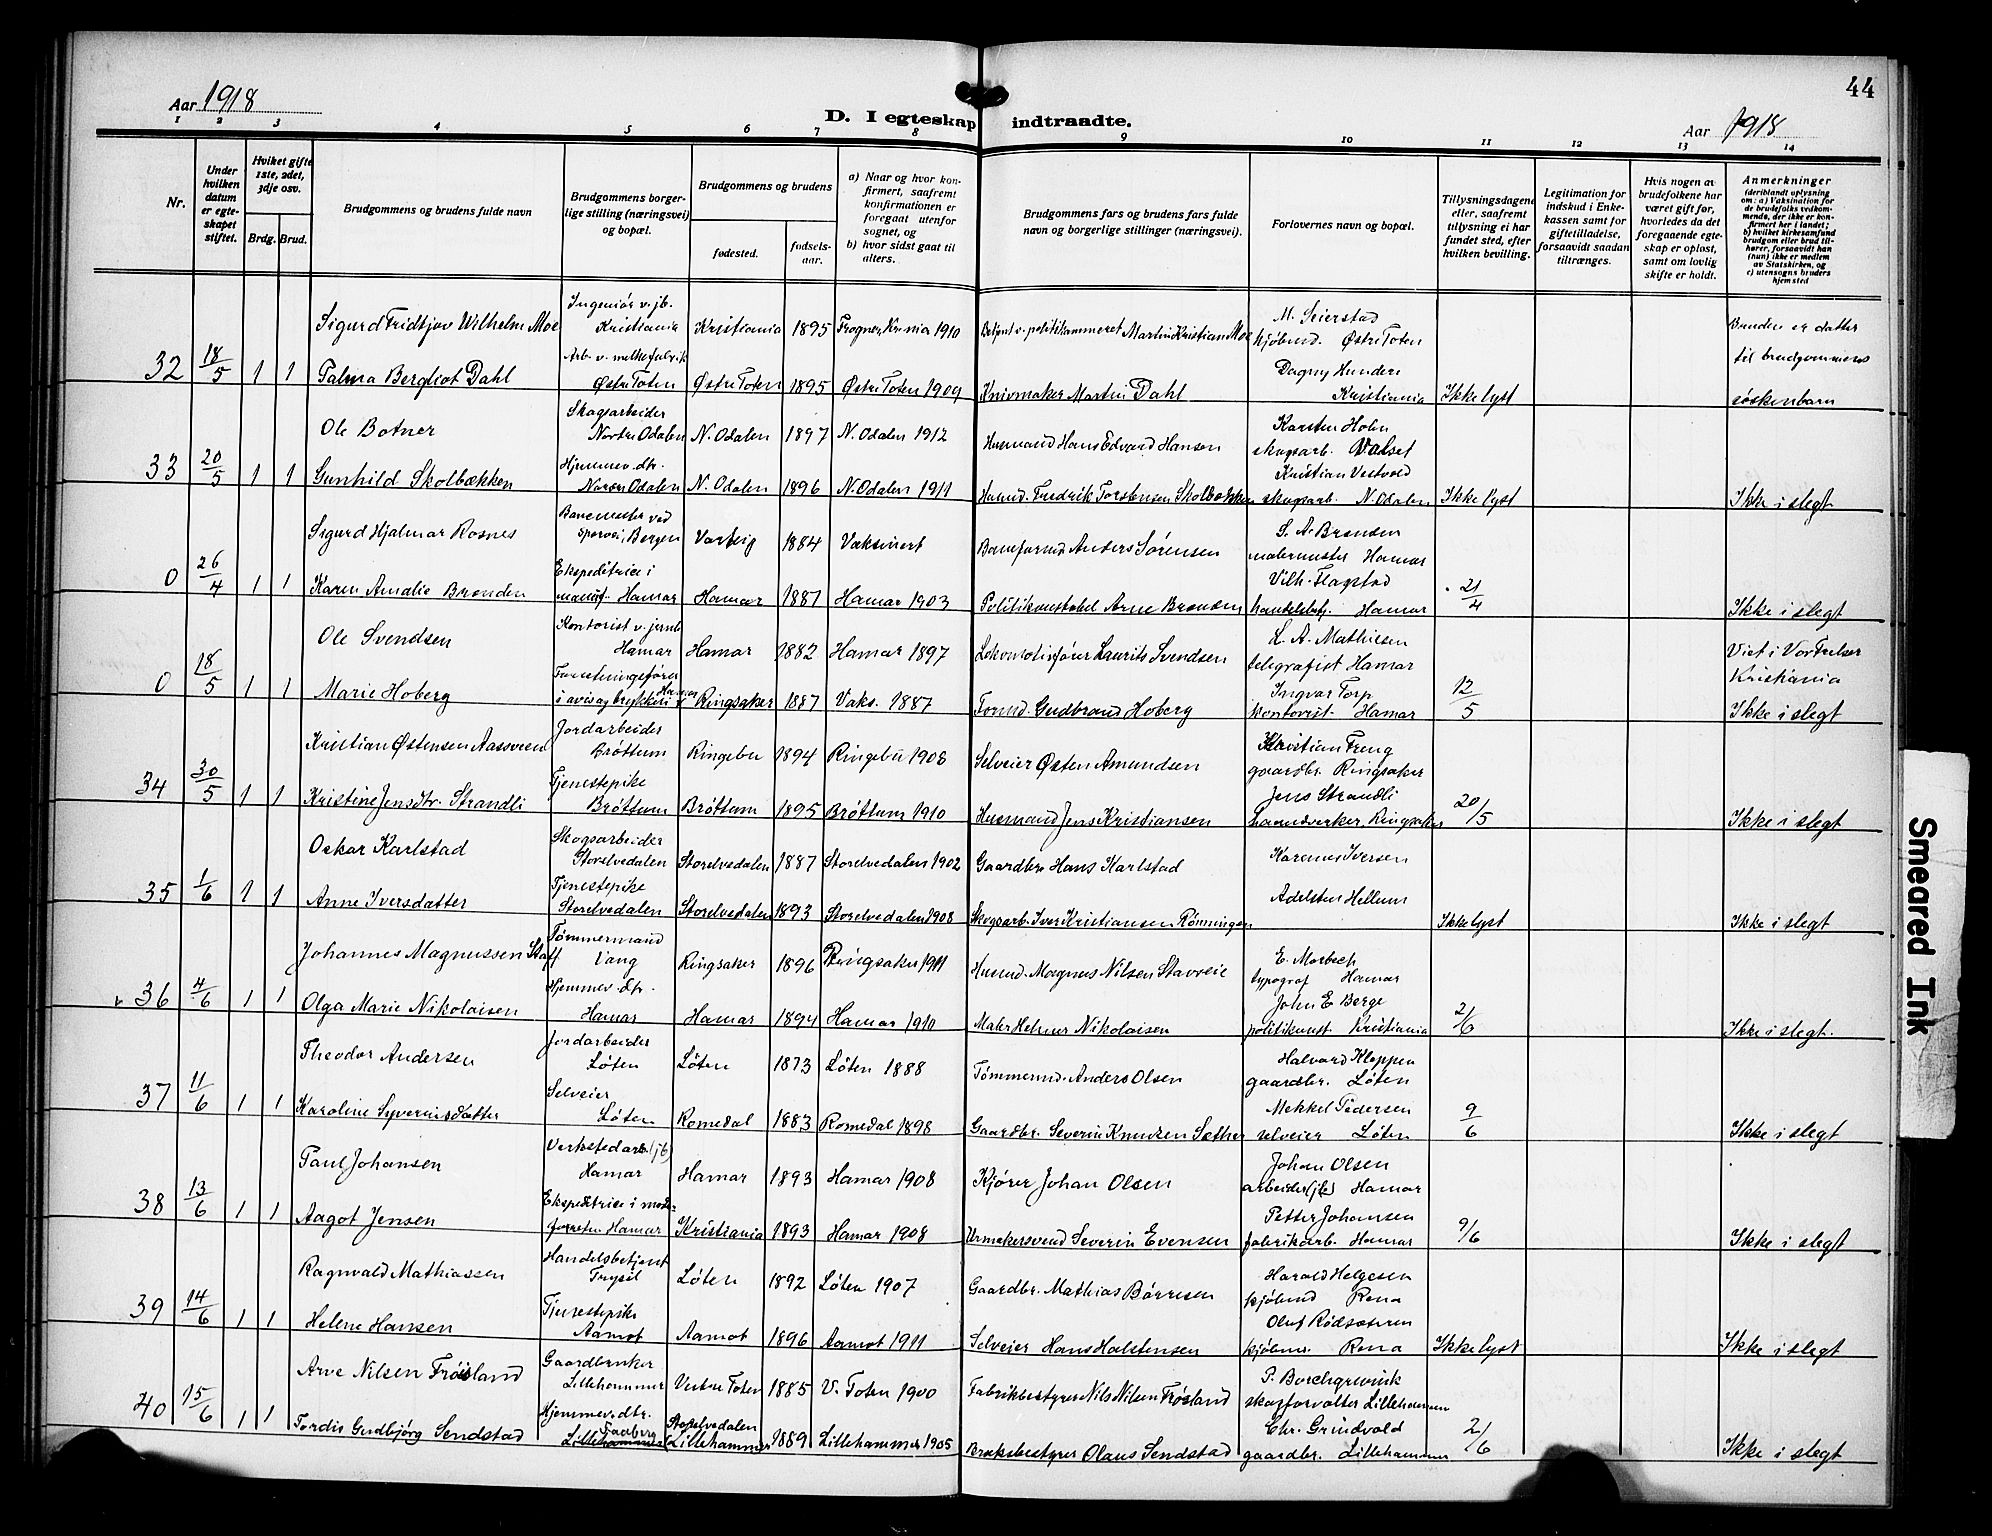 44
Aar 1918
D. I egteskap indtraadte.
Aar 1918
1 2 3 4 5 6 7 8 9 10 11 12 13 14
Nr.
Under hvilken datum er egteskapet stiftet.
Hvilket gifte 1ste, 2det, 3dje osv.
Brdg. Brud.
Brudgommens og brudens fulde navn
Brudgommens borgerlige stilling (næringsvei) og bopæl.
Brudgommens og brudens
fødested.
fødselsaar.
a) Naar og hvor konfirmert, saafremt konfirmationen er foregaat utenfor sognet, og
b) hvor sidst gaat til alters.
Brudgommens fars og brudens fars fulde navn og borgerlige stillinger (næringsvei).
Forlovernes navn og bopæl.
Tillysningsdagene eller, saafremt tillysning ei har fundet sted, efter hvilken bevilling.
Legitimation for indskud i Enkekassen samt for giftetilladelse, forsaavidt saadan tiltrænges.
Hvis nogen av brudefolkene har været gift før, hvorledes da det foregaaende egteskap er opløst, samt om lovlig skifte er holdt.
Anmerkninger
(deriblandt oplysning om: a) Vaksination for de brudefolks vedkommende, der ikke er konfirmert her i landet; b) hvilket kirkesamfund brudgom eller brud tilhører, forsaavidt han (hun) ikke er medlem av Statskirken, og c) utensogns bruders hjemsted
Sigurd Fridtjov Wilhelm Moe Ingeniør v. jb. Kristiania Kristiania 1895 Frogner, Kr.nia 1910 Betjent v. politikammeret Martin Kristian Moe M. Seierstad kjøbmd. Østre Toten Bruden er datter
32 18/5 1 1 Palma Bergliot Dahl Arb. v. melkefabrik Østre Toten Østre Toten 1895 Østre Toten 1909 Knivmaker Martin Dahl Dagny Hunderi Kristiania Ikke lyst til brudgommens søskenbarn
Ole Botner Skogsarbeider Nordre Odalen N. Odalen 1897 N. Odalen 1912 Husmand Hans Edvard Hansen Karsten Holen skogsarb. Valset
33 20/5 1 1 Gunhild Skolbækken Hjemmev. dtr. Nordre Odalen N. Odalen 1896 N. Odalen 1911 Husmd. Fredrik Torstensen Skolbækken Kristian Vestvold skogsarb. N. Odalen Ikke lyst Ikke i slegt
Sigurd Hjalmar Rosnes Banemester ved sporvei, Bergen Varteig 1884 Vaksinert Baneformd Anders Sørensen S. A. Brenden malermester Hamar
0 26/4 1 1 Karen Amalie Brenden Ekspeditrice i manuf. Hamar Hamar 1887 Hamar 1903 Politikonstabel Arne Brenden Vilh. Flagstad handelsbf. Hamar 21/4 Ikke i slegt
Ole Svendsen Kontorist v. jernb Hamar Hamar 1882 Hamar 1897 Lokomotivfører Laurits Svendsen L. A. Mathisen telegrafist Hamar Viet i Vor Frelser Kristiania
0 18/5 1 1 Marie Hoberg Forretningsfører i avis og trykkeri Hamar Ringsaker 1887 Vaks. 1887 Formd. Gudbrand Hoberg Ingvar Torp kontorist Hamar 12/5 Ikke i slegt
Kristian Østensen Aassveen Jordarbeider Brøttum Ringebu 1894 Ringebu 1908 Selveier Østen Amundsen Kristian Freng gaardbr. Ringsaker
34 30/5 1 1 Kristine Jensdtr. Strandli Tjenestepike Brøttum Brøttum 1895 Brøttum 1910 Husmand Jens Kristiansen Jens Strandli haandverker, Ringsaker 20/5 Ikke i slegt
Oskar Karlstad Skogsarbeider Storelvedalen Storelvedalen 1887 Storelvedalen 1902 Gaardbr Hans Karlstad Karenus Iversen
35 1/6 1 1 Anne Iversdatter Tjenestepike Storelvedalen Storelvedalen 1893 Storelvedalen 1908 Skogsarb. Iver Kristiansen Rønningen Adelsten Hellum Ikke lyst Ikke i slegt
Johannes Magnussen Staff Tømmermand Vang Ringsaker 1896 Ringsaker 1911 Husmd. Magnus Nilsen Stavseie E. Morbech typograf Hamar
36 4/6 1 1 Olga Marie Nikolaisen Hjemmev. dtr. Hamar Hamar 1894 Hamar 1910 Maler Helmer Nikolaisen John E Berge politikonst. Kristiania 2/6 Ikke i slegt.
Theodor Andersen Jordarbeider Løten Løten 1873 Løten 1888 Tømmermd. Anders Olsen Halvard Kloppen gaardbr. Løten
37 11/6 1 1 Karoline Syverinsdatter Selveier Løten Romedal 1883 Romedal 1898 Gaardbr. Severin Knudsen Sæther Mekkel Pedersen selveier Løten 9/6 Ikke i slegt
Paul Johansen Verkstedarb. (jb) Hamar Hamar 1893 Hamar 1908 Kjører Johan Olsen Johan Olsen arbeider (jb) Hamar
38 13/6 1 1 Aagot Jensen Ekspeditrice i mode- forretn Hamar Kristiania 1893 Hamar 1908 Urmakersvend Severin Evensen Petter Johansen fabrikarb. Hamar 9/6 Ikke i slegt
Ragnvald Mathiassen Handelsbetjent Trysil Løten 1892 Løten 1907 Gaardbr. Mathias Børresen Harald Helgesen kjøbmd Rena
39 14/6 1 1 Helene Hansen Tjenestepike Aamot Aamot 1896 Aamot 1911 Selveier Hans Halstensen Oluf Rødsæteren kjøbm. Rena Ikke lyst Ikke i slegt
Arve Nilsen Frøisland Gaardbruker Lillehammer Vestre Toten 1885 V. Toten 1900 Fabrikbestyrer Nils Nilsen Frøsland P. Borchgrevink skogforvalter Lillehammer
40 15/6 1 1 Tordis Gudbjørg Sendstad Hjemmev. dtr. Faaberg Lillehammer Storelvedalen Lillehammer 1889 Lillehammer 1905 Bruksbestyrer Olaus Sendstad Chr. Grundvold gaardbr. Lillehammer 2/6 Ikke i slegt
Smeared Ink